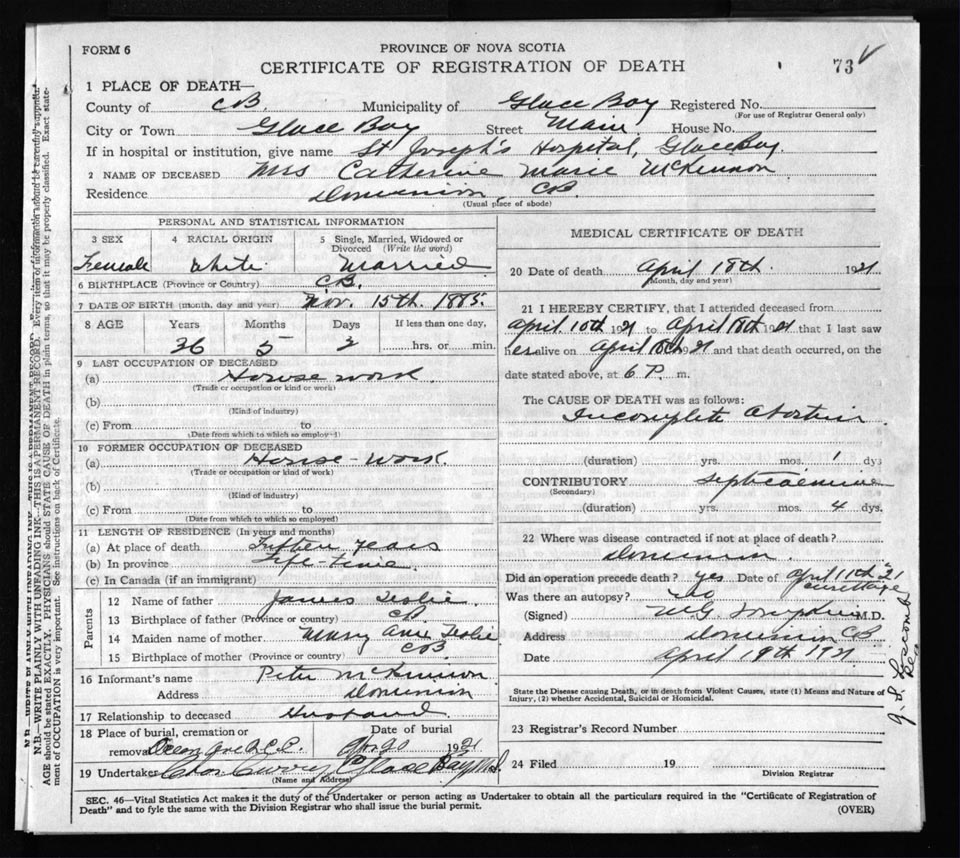 FORM 6
PROVINCE OF NOVA SCOTIA
CERTIFICATE OF REGISTRATION OF DEATH
73
1 PLACE OF DEATH—
County of CB Municipality of Glace Bay Registered No.
(For use of Registrar General only)
City or Town Glace Bay Street Main House No.
If in hospital or institution, give name St Joseph's Hospital, Glace Bay.
2 NAME OF DECEASED Mrs Catherine Marie McKinnon
Residence Dominion, CB.
(Usual place of abode)
PERSONAL AND STATISTICAL INFORMATION
3 SEX 4 RACIAL ORIGIN 5 Single, Married, Widowed or
Divorced (Write the word)
Female White Married
6 BIRTHPLACE (Province or Country) CB.
7 DATE OF BIRTH (month, day and year) Nov. 15th. 1885.
8 AGE Years Months Days If less than one day,
36 5 3 hrs. or min.
9 LAST OCCUPATION OF DECEASED
(a) House work.
(Trade or occupation or kind or work)
(b)
(Kind of industry)
(c) From to
(Date from which to which so employed)
10 FORMER OCCUPATION OF DECEASED
(a) House-work.
(Trade or occupation or kind of work)
(b)
(Kind of industry)
(c) From to
(Date from which to which so employed)
11 LENGTH OF RESIDENCE (In years and months)
(a) At place of death Fifteen years
(b) In province Life-time.
(c) In Canada (if an immigrant)
Parents
12 Name of father James Leslie.
13 Birthplace of father (Province or country) CB
14 Maiden name of mother Mary Ann Leslie
15 Birthplace of mother (Province or country) CB
16 Informant's name Peter McKinnon
Address Dominion
17 Relationship to deceased Husband.
18 Place of burial, cremation or Date of burial
removal 1921
19 Undertaker Curry Glace Bay N.S.
(Name and Address)
MEDICAL CERTIFICATE OF DEATH
20 Date of death April 18th. 1921
(Month, day and year)
21 I HEREBY CERTIFY, that I attended deceased from
April 10th 1921 to April 18th 1921 that I last saw
her alive on April 18th 1921 and that death occurred, on the
date stated above, at 6 P. m.
The CAUSE OF DEATH was as follows:
Incomplete Abortion
(duration) yrs. mos. 1 dys
CONTRIBUTORY Septicaemia
(Secondary)
(duration) yrs. mos. 4 dys.
22 Where was disease contracted if not at place of death?
Dominion.
Did an operation precede death? Yes Date of April 11th 21
curettage
Was there an autopsy? No
(Signed) M.D.
Address Dominion CB
Date April 19th 1921
State the Disease causing Death, or in death from Violent Causes, state (1) Means and Nature of
Injury, (2) whether Accidental, Suicidal or Homicidal.
23 Registrar's Record Number
24 Filed 19
Division Registrar
SEC. 46—Vital Statistics Act makes it the duty of the Undertaker or person acting as Undertaker to obtain all the particulars required in the "Certificate of Registration of
Death" and to fyle the same with the Division Registrar who shall issue the burial permit.
(OVER)
N.B.—WRITE PLAINLY WITH UNFADING INK—THIS IS A PERMANENT RECORD. Every item of information should be carefully supplied.
AGE should be stated EXACTLY. PHYSICIANS should STATE CAUSE OF DEATH in plain terms, so that it may be properly classified. Exact state-
ment of OCCUPATION is very important. See instructions on back of Certificate.